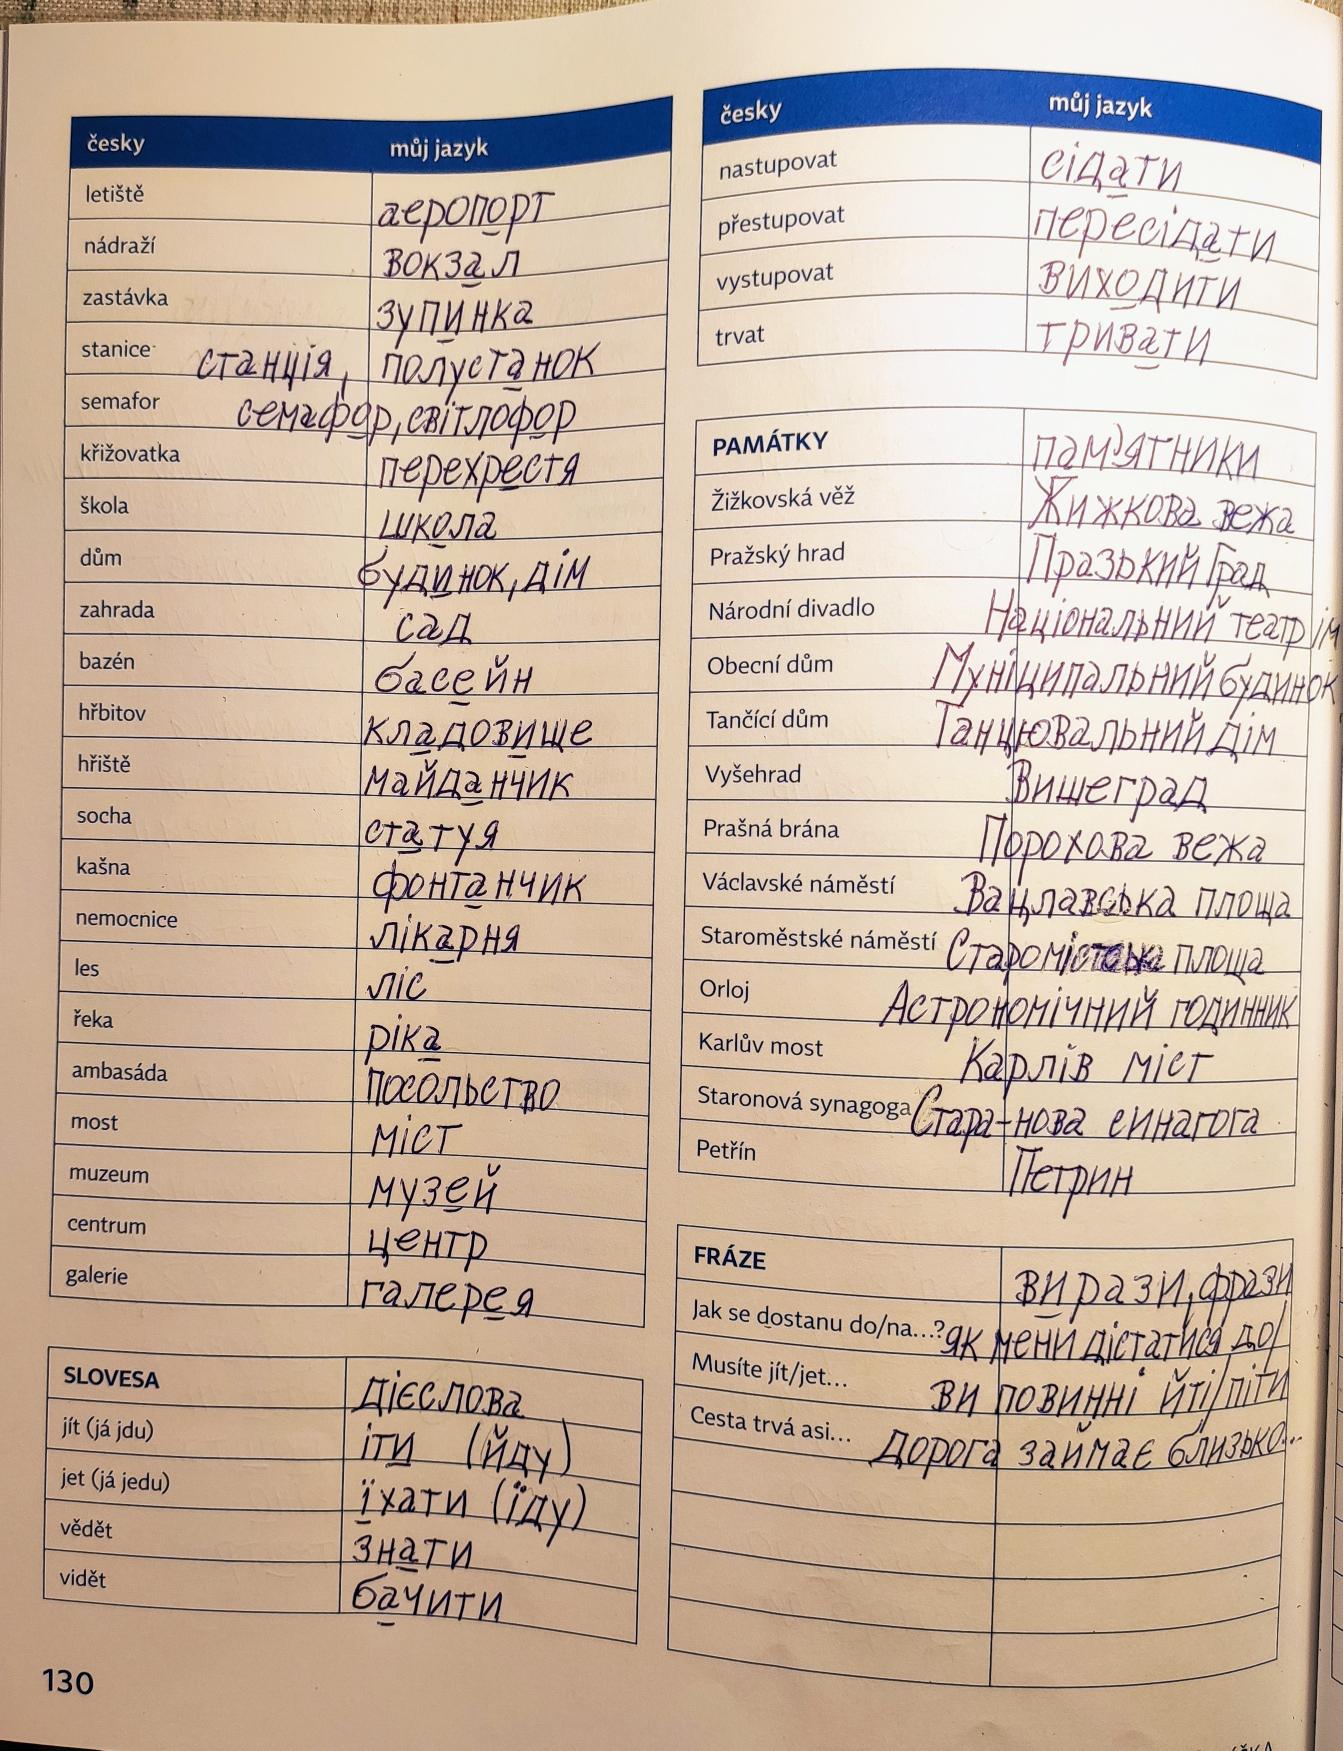 česky můj jazyk
letiště аеропорт
nádraží вокзал
zastávka зупинка
stanice станція, полустанок
semafor семафор, світлофор
křižovatka перехрестя
škola школа
dům будинок, дім
zahrada сад
bazén басейн
hřbitov кладовище
hřiště майданчик
socha статуя
kašna фонтанчик
nemocnice лікарня
les ліс
řeka ріка
ambasáda посольство
most міст
muzeum музей
centrum центр
galerie галерея
SLOVESA дієслова
jít (já jdu) іти (йду)
jet (já jedu) їхати (їду)
vědět знати
vidět бачити
130
česky můj jazyk
nastupovat сідати
přestupovat пересідати
vystupovat виходити
trvat тривати
PAMÁTKY пам'ятники
Žižkovská věž Жижкова вежа
Pražský hrad Празький Град
Národní divadlo Національний театр ім
Obecní dům Муніципальний будинок
Tančící dům Танцювальний дім
Vyšehrad Вишеград
Prašná brána Порохова вежа
Václavské náměstí Вацлавська площа
Staroměstské náměstí Староміська площа
Orloj Астрономічний годинник
Karlův most Карлів міст
Staronová synagoga Стара-нова синагога
Petřín Петрин
FRÁZE вирази, фрази
Jak se dostanu do/na...? як мени дістатися до/
Musíte jít/jet... ви повинні йті/піти
Cesta trvá asi... дорога займає близько...